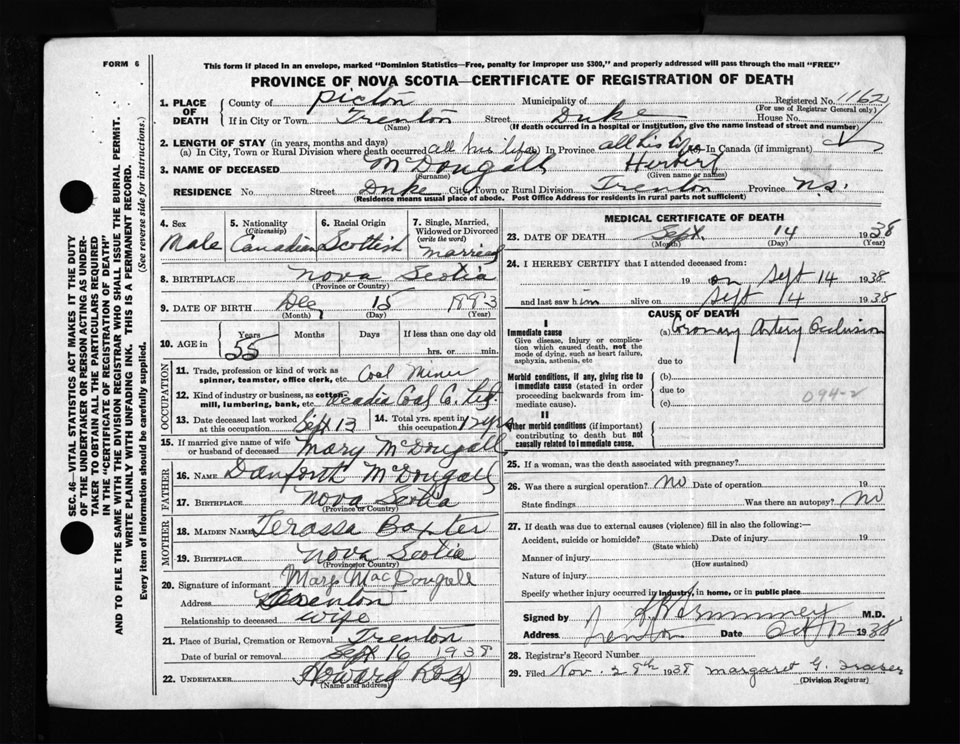 FORM 6
This form if placed in an envelope, marked "Dominion Statistics—Free, penalty for improper use $300," and properly addressed will pass through the mail "FREE"
PROVINCE OF NOVA SCOTIA—CERTIFICATE OF REGISTRATION OF DEATH
SEC. 46—VITAL STATISTICS ACT MAKES IT THE DUTY
OF THE UNDERTAKER OR PERSON ACTING AS UNDER-
TAKER TO OBTAIN ALL THE PARTICULARS REQUIRED
IN THE "CERTIFICATE OF REGISTRATION OF DEATH"
AND TO FILE THE SAME WITH THE DIVISION REGISTRAR WHO SHALL ISSUE THE BURIAL PERMIT.
WRITE PLAINLY WITH UNFADING INK. THIS IS A PERMANENT RECORD.
Every item of information should be carefully supplied. (See reverse side for instructions.)
1. PLACE OF DEATH
County of Pictou Municipality of Registered No. 1162
(For use of Registrar General only)
If in City or Town Trenton Street Duke House No.
(Name) (If death occurred in a hospital or institution, give the name instead of street and number)
2. LENGTH OF STAY (in years, months and days)
(a) In City, Town or Rural Division where death occurred all his life In Province all his life In Canada (if immigrant)
3. NAME OF DECEASED McDougall Herbert
(Surname) (Given name or names)
RESIDENCE No. Street Duke City, Town or Rural Division Trenton Province N.S.
(Residence means usual place of abode. Post Office Address for residents in rural parts not sufficient)
4. Sex 5. Nationality (Citizenship) 6. Racial Origin 7. Single, Married, Widowed or Divorced (write the word)
Male Canadian Scottish married
8. BIRTHPLACE Nova Scotia
(Province or Country)
9. DATE OF BIRTH Dec 15
(Month) (Day) (Year)
10. AGE in Years Months Days If less than one day old
55 hrs. or min.
OCCUPATION
11. Trade, profession or kind of work as spinner, teamster, office clerk, etc. Coal Miner
12. Kind of industry or business, as cotton mill, lumbering, bank, etc. Acadia Coal C. Ltd.
13. Date deceased last worked at this occupation Sept 13 14. Total yrs. spent in this occupation
15. If married give name of wife or husband of deceased Mary McDougall
FATHER
16. NAME Danforth McDougall
17. BIRTHPLACE Nova Scotia
(Province or Country)
MOTHER
18. MAIDEN NAME Terassa Baxter
19. BIRTHPLACE Nova Scotia
(Province or Country)
20. Signature of informant Mary MacDougall
Address Trenton
Relationship to deceased wife
21. Place of Burial, Cremation or Removal Trenton
Date of burial or removal Sept 16 1938
22. UNDERTAKER Howard Ross
(Name and address)
MEDICAL CERTIFICATE OF DEATH
23. DATE OF DEATH Sept. 14 1938
(Month) (Day) (Year)
24. I HEREBY CERTIFY that I attended deceased from:
19 on Sept 14 1938
and last saw him alive on Sept 14 1938
CAUSE OF DEATH
I
Immediate cause (a) Coronary Artery Occlusion
Give disease, injury or complication which caused death, not the mode of dying, such as heart failure, asphyxia, asthenia, etc
due to
Morbid conditions, if any, giving rise to immediate cause (stated in order proceeding backwards from immediate cause).
(b)
due to 094-2
(c)
II
Other morbid conditions (if important) contributing to death but not causally related to immediate cause.
25. If a woman, was the death associated with pregnancy?
26. Was there a surgical operation? No Date of operation 19
State findings Was there an autopsy? No
27. If death was due to external causes (violence) fill in also the following:—
Accident, suicide or homicide? Date of injury 19
(State which)
Manner of injury
(How sustained)
Nature of injury
Specify whether injury occurred in industry, in home, or in public place
Signed by M.D.
Address Trenton Date Oct 12 1938
28. Registrar's Record Number
29. Filed Nov. 28th 1938 Margaret G. Fraser
(Division Registrar)